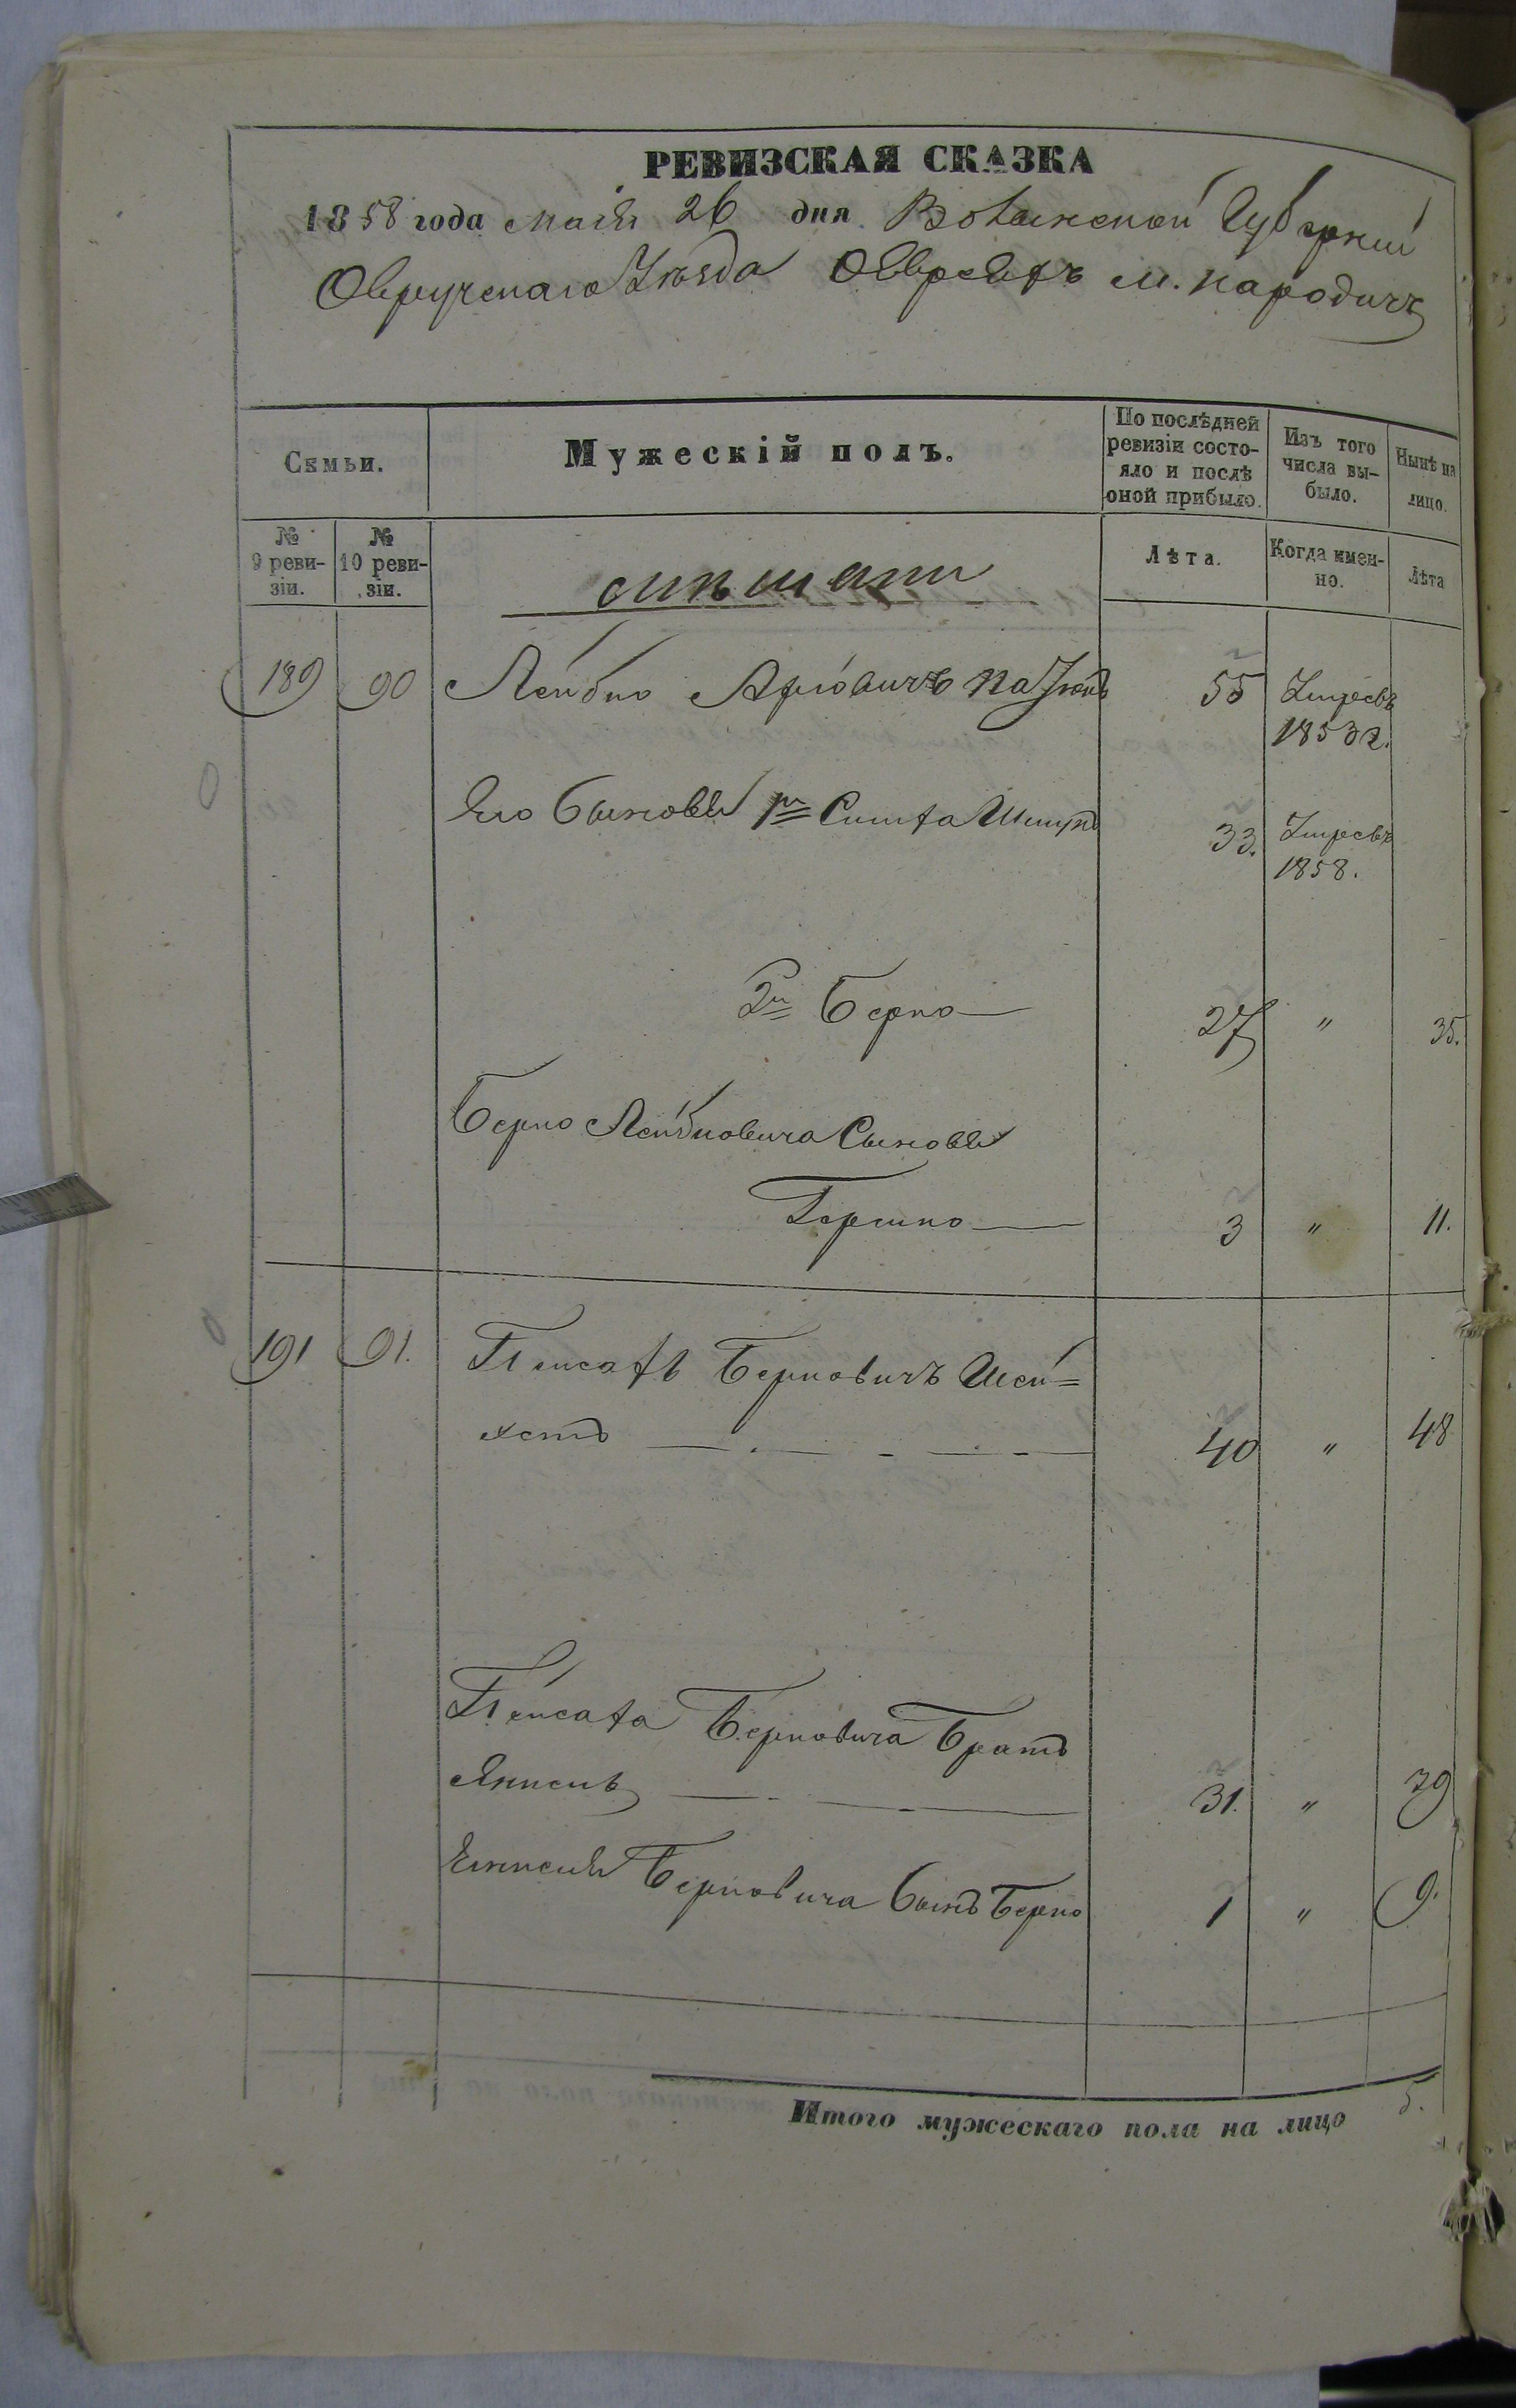 РЕВИЗСКАЯ СКАЗКА
1858 года маія 26 дня Волынской Губерніи
Овручскаго Уѣзда О Евреяхъ м. Народичъ
Семьи.
Мужескій полъ.
По послѣдней ревизіи состо-
яло и послѣ
оной прибыло.
Изъ того
числа вы-
было.
Нынѣ на
лицо.
№
9 реви-
зіи.
№
10 реви-
зіи.
Лѣта.
Когда имен-
но.
Лѣта
189 90 Лейбко Аріовичъ 55 Умре въ
1853 г.
Его Сыновья 1й 33. Умре въ
1858.
2й Берко 27 " 35.
Берко Лейбковича Сыновья
Гершко 3 " 11.
191 91. Пейсахъ Берковичъ
40 " 48
Пейсаха Берковича Братъ
31. " 39
Берковича Сынъ Берко 1 " 9.
Итого мужескаго пола на лицо 5.